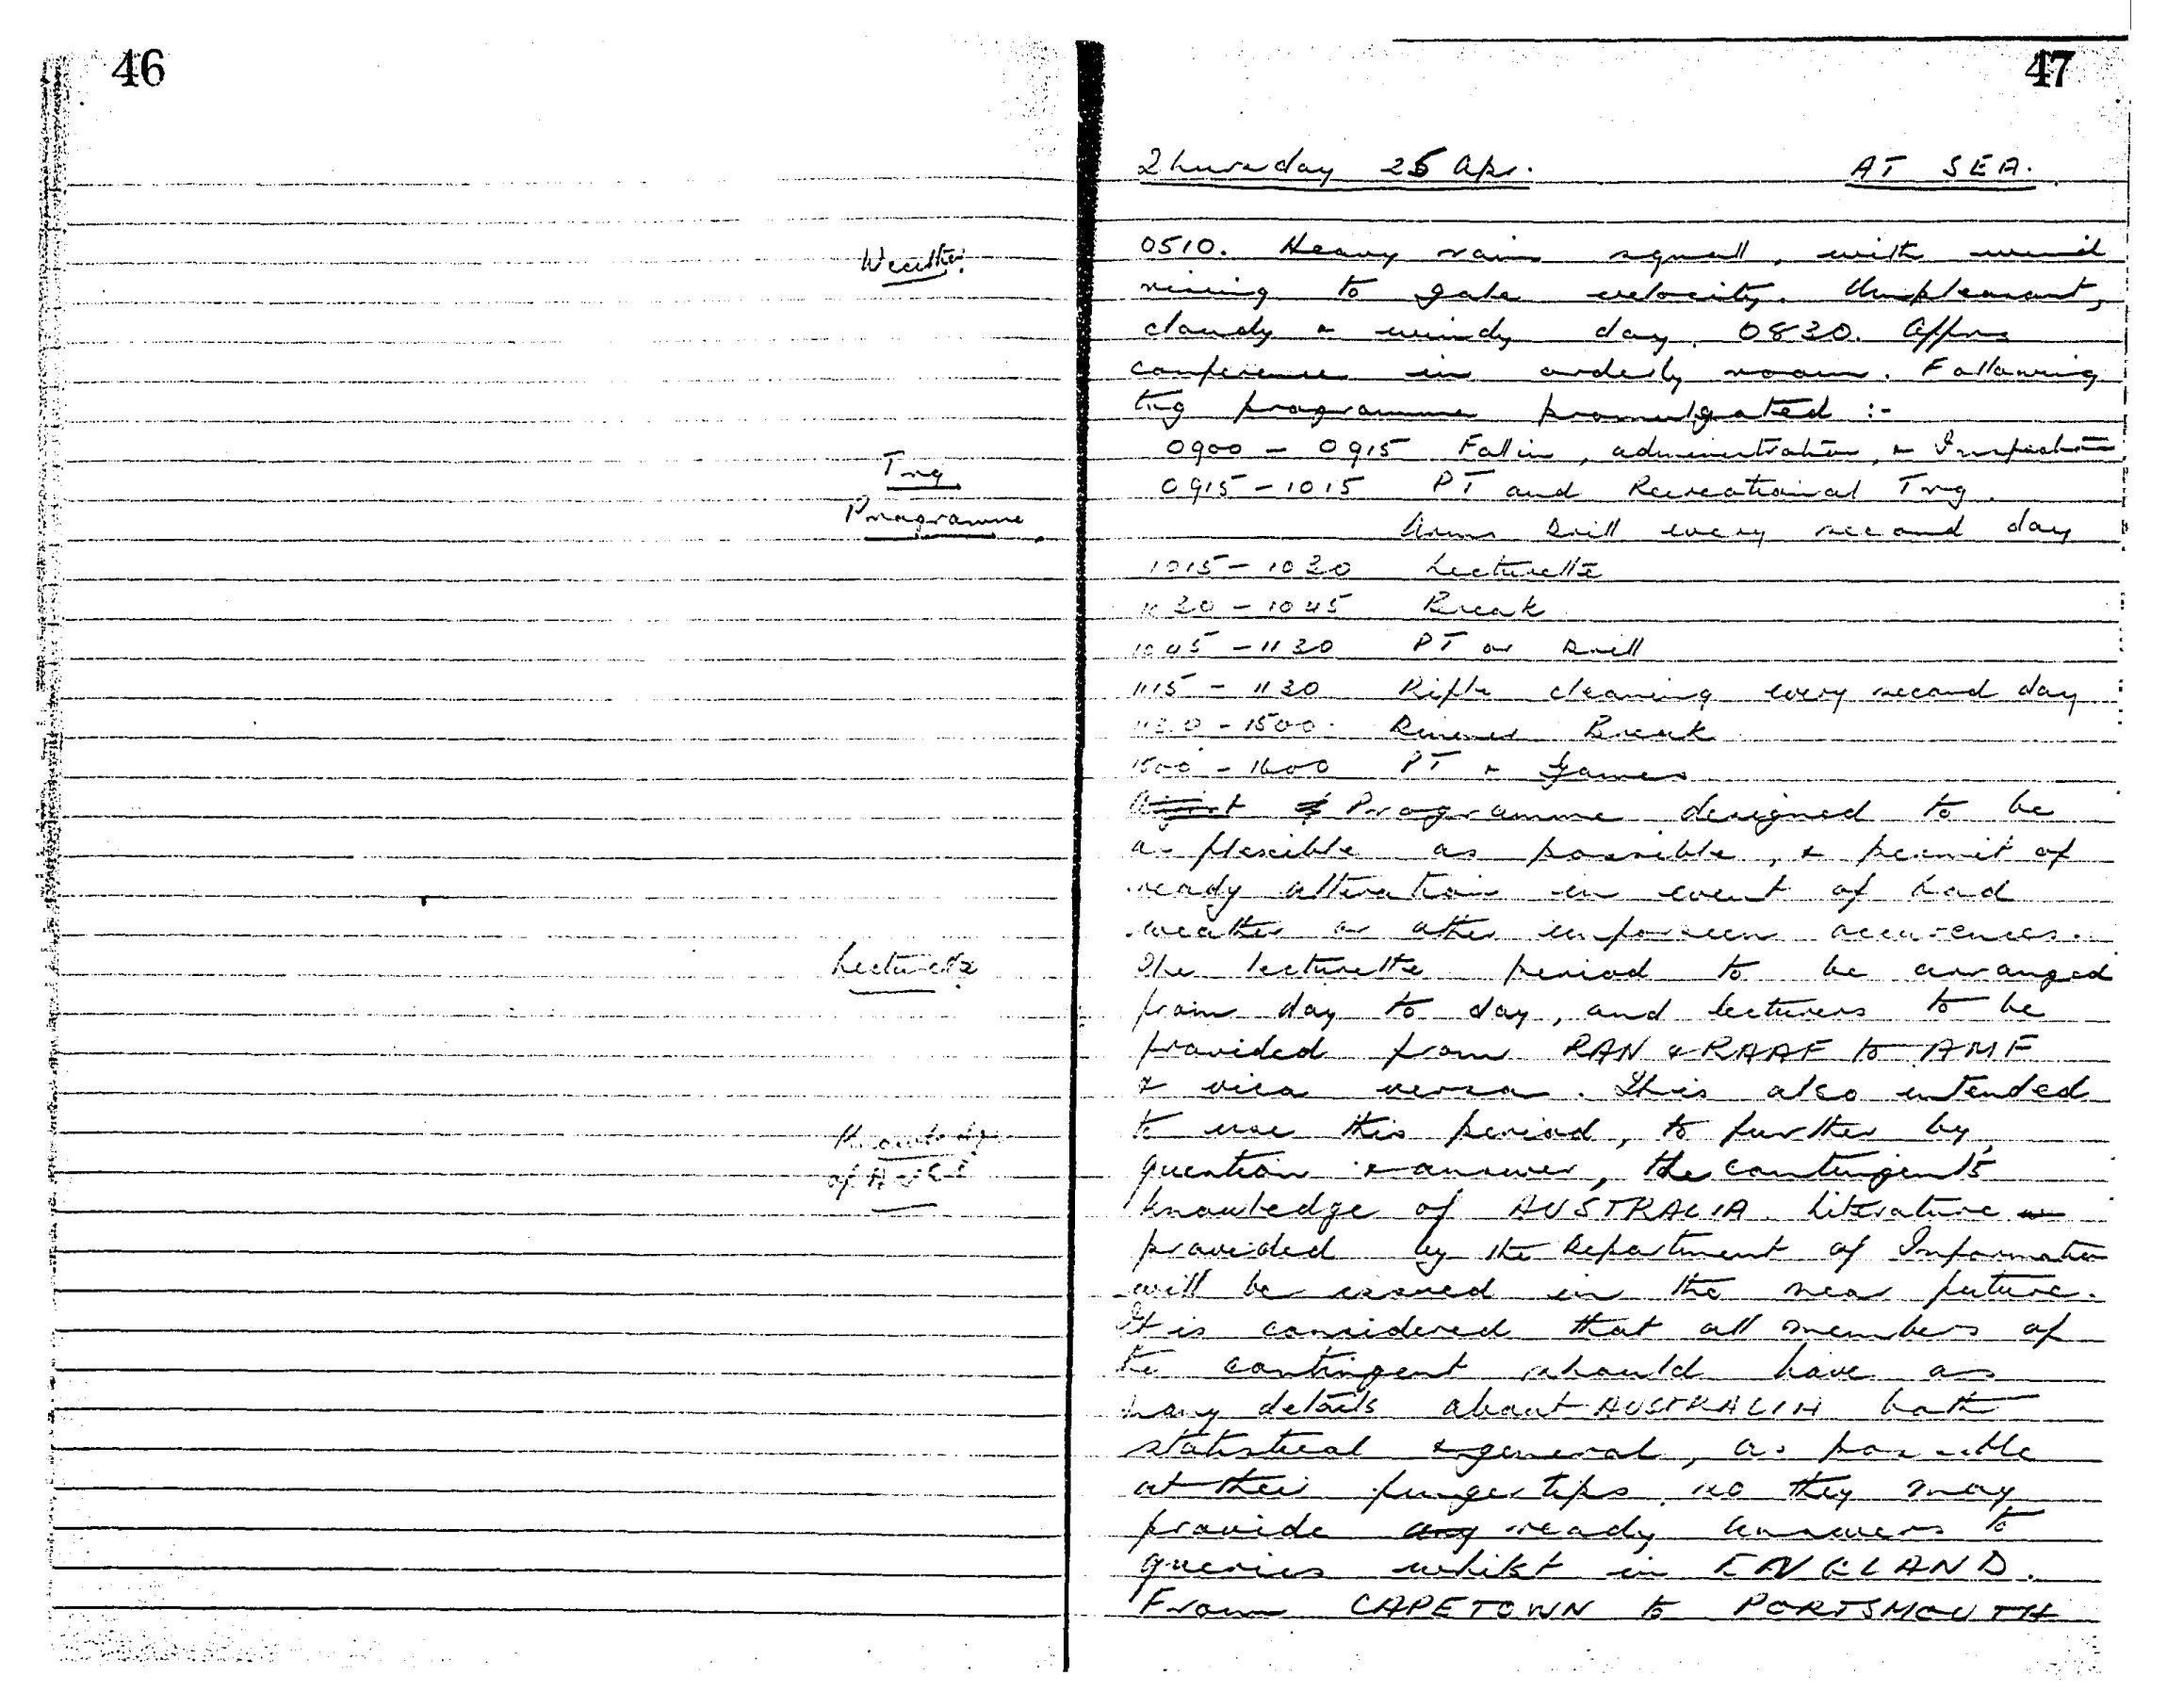 46
Weather.
Trng
Programme.
Lecturette
Knowledge
of AUST
47
Thursday 25 Apr. AT SEA.
0510. Heavy rain squall, with wind
rising to gale velocity. Unpleasant,
cloudy & windy day. 0830. Offrs
conference in orderly room. Following
trg programme promulgated :-
0900 - 0915 Fall in, administration, & Inspection
0915 - 1015 PT and Recreational Trng.
Arms Drill every second day
1015 - 1030 Lecturette
1030 - 1045 Break
1045 - 1130 PT or Drill
1115 - 1130 Rifle cleaning every second day
1130 - 1500. Dinner Break
1500 - 1600 PT & Games
Programme designed to be
as flexible as possible, & permit of
ready alteration in event of bad
weather or other unforseen occurences.
The lecturette period to be arranged
from day to day, and lecturers to be
provided from RAN & RAAF to AMF
& vica versa. This also intended
to use this period, to further by,
question & answer, the contingents
knowledge of AUSTRALIA. Literature
provided by the Department of Information
will be issued in the near future.
It is considered that all members of
the contingent should have as
many details about AUSTRALIA both
statistical & general, as possible
at their fingertips so they may
provide any ready answers to
queries whilst in ENGLAND.
From CAPETOWN to PORTSMOUTH